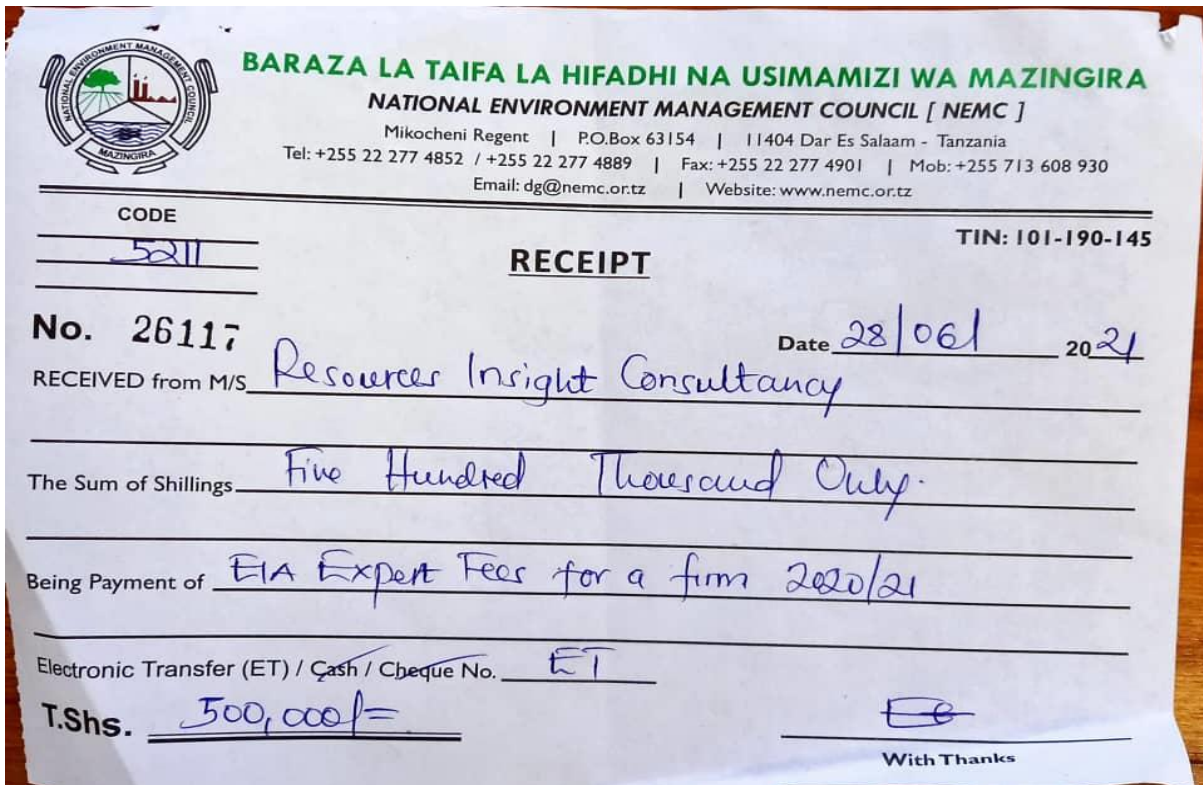 NATIONAL ENVIRONMENT MANAGEMENT COUNCIL
MAZINGIRA
BARAZA LA TAIFA LA HIFADHI NA USIMAMIZI WA MAZINGIRA
NATIONAL ENVIRONMENT MANAGEMENT COUNCIL [ NEMC ]
Mikocheni Regent | P.O.Box 63154 | 11404 Dar Es Salaam - Tanzania
Tel: +255 22 277 4852 / +255 22 277 4889 | Fax: +255 22 277 4901 | Mob: +255 713 608 930
Email: dg@nemc.or.tz | Website: www.nemc.or.tz
CODE
5211
TIN: 101-190-145
RECEIPT
No. 26117
Date 28/06/ 2021
RECEIVED from M/S Resources Insight Consultancy
The Sum of Shillings Five Hundred Thousand Only.
Being Payment of EIA Expert Fees for a firm 2020/21
Electronic Transfer (ET) / Cash / Cheque No. ET
T.Shs. 500,000/=
With Thanks